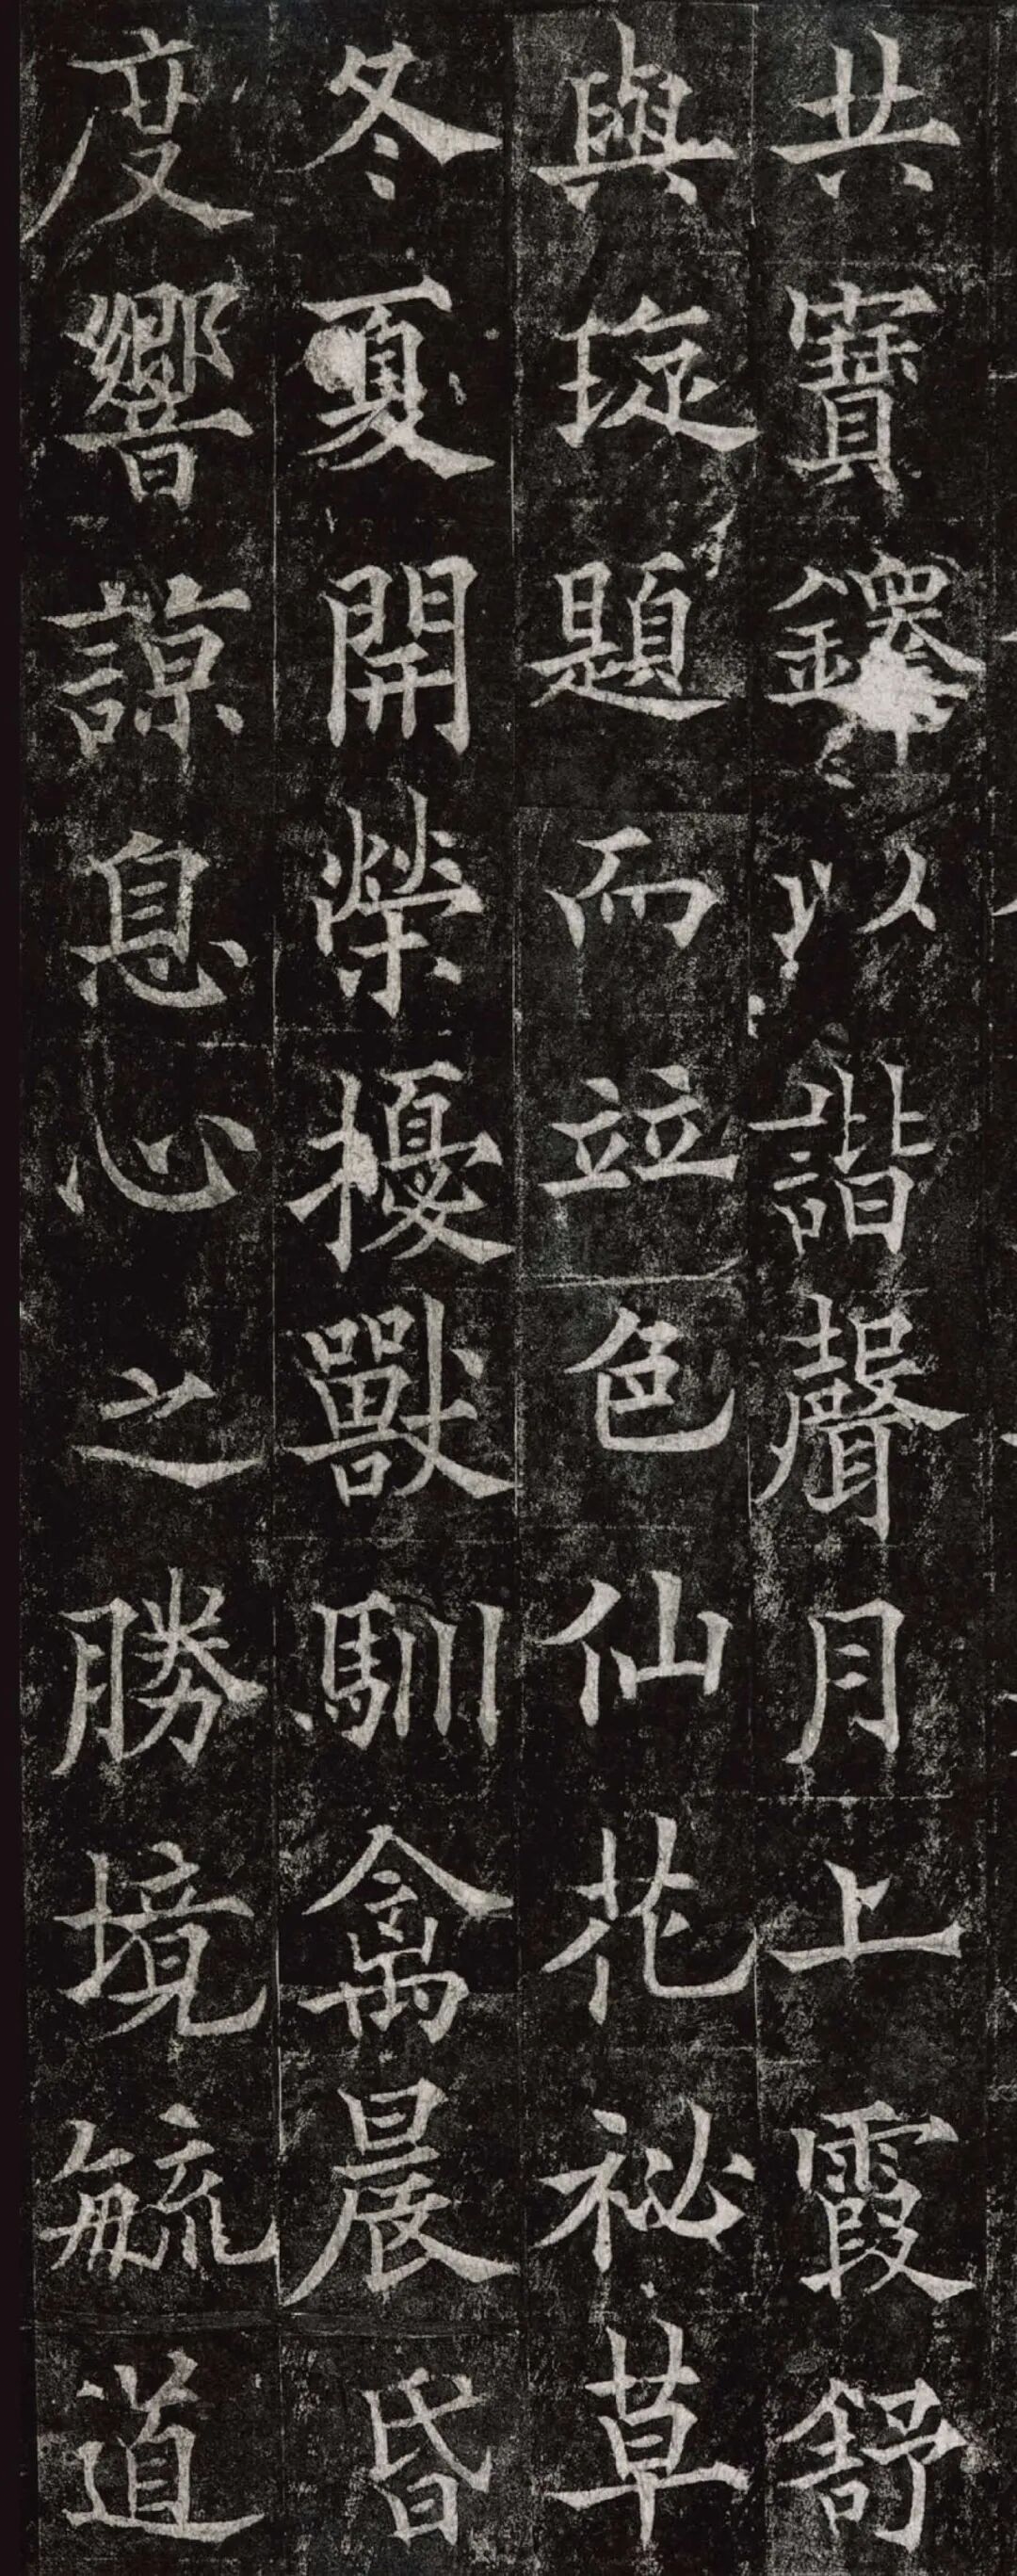 共寶鐸以諧聲月上霞舒
與琁題而並色仙花祕草
冬夏開榮擾獸馴禽晨昏
度響諒息心之勝境毓道